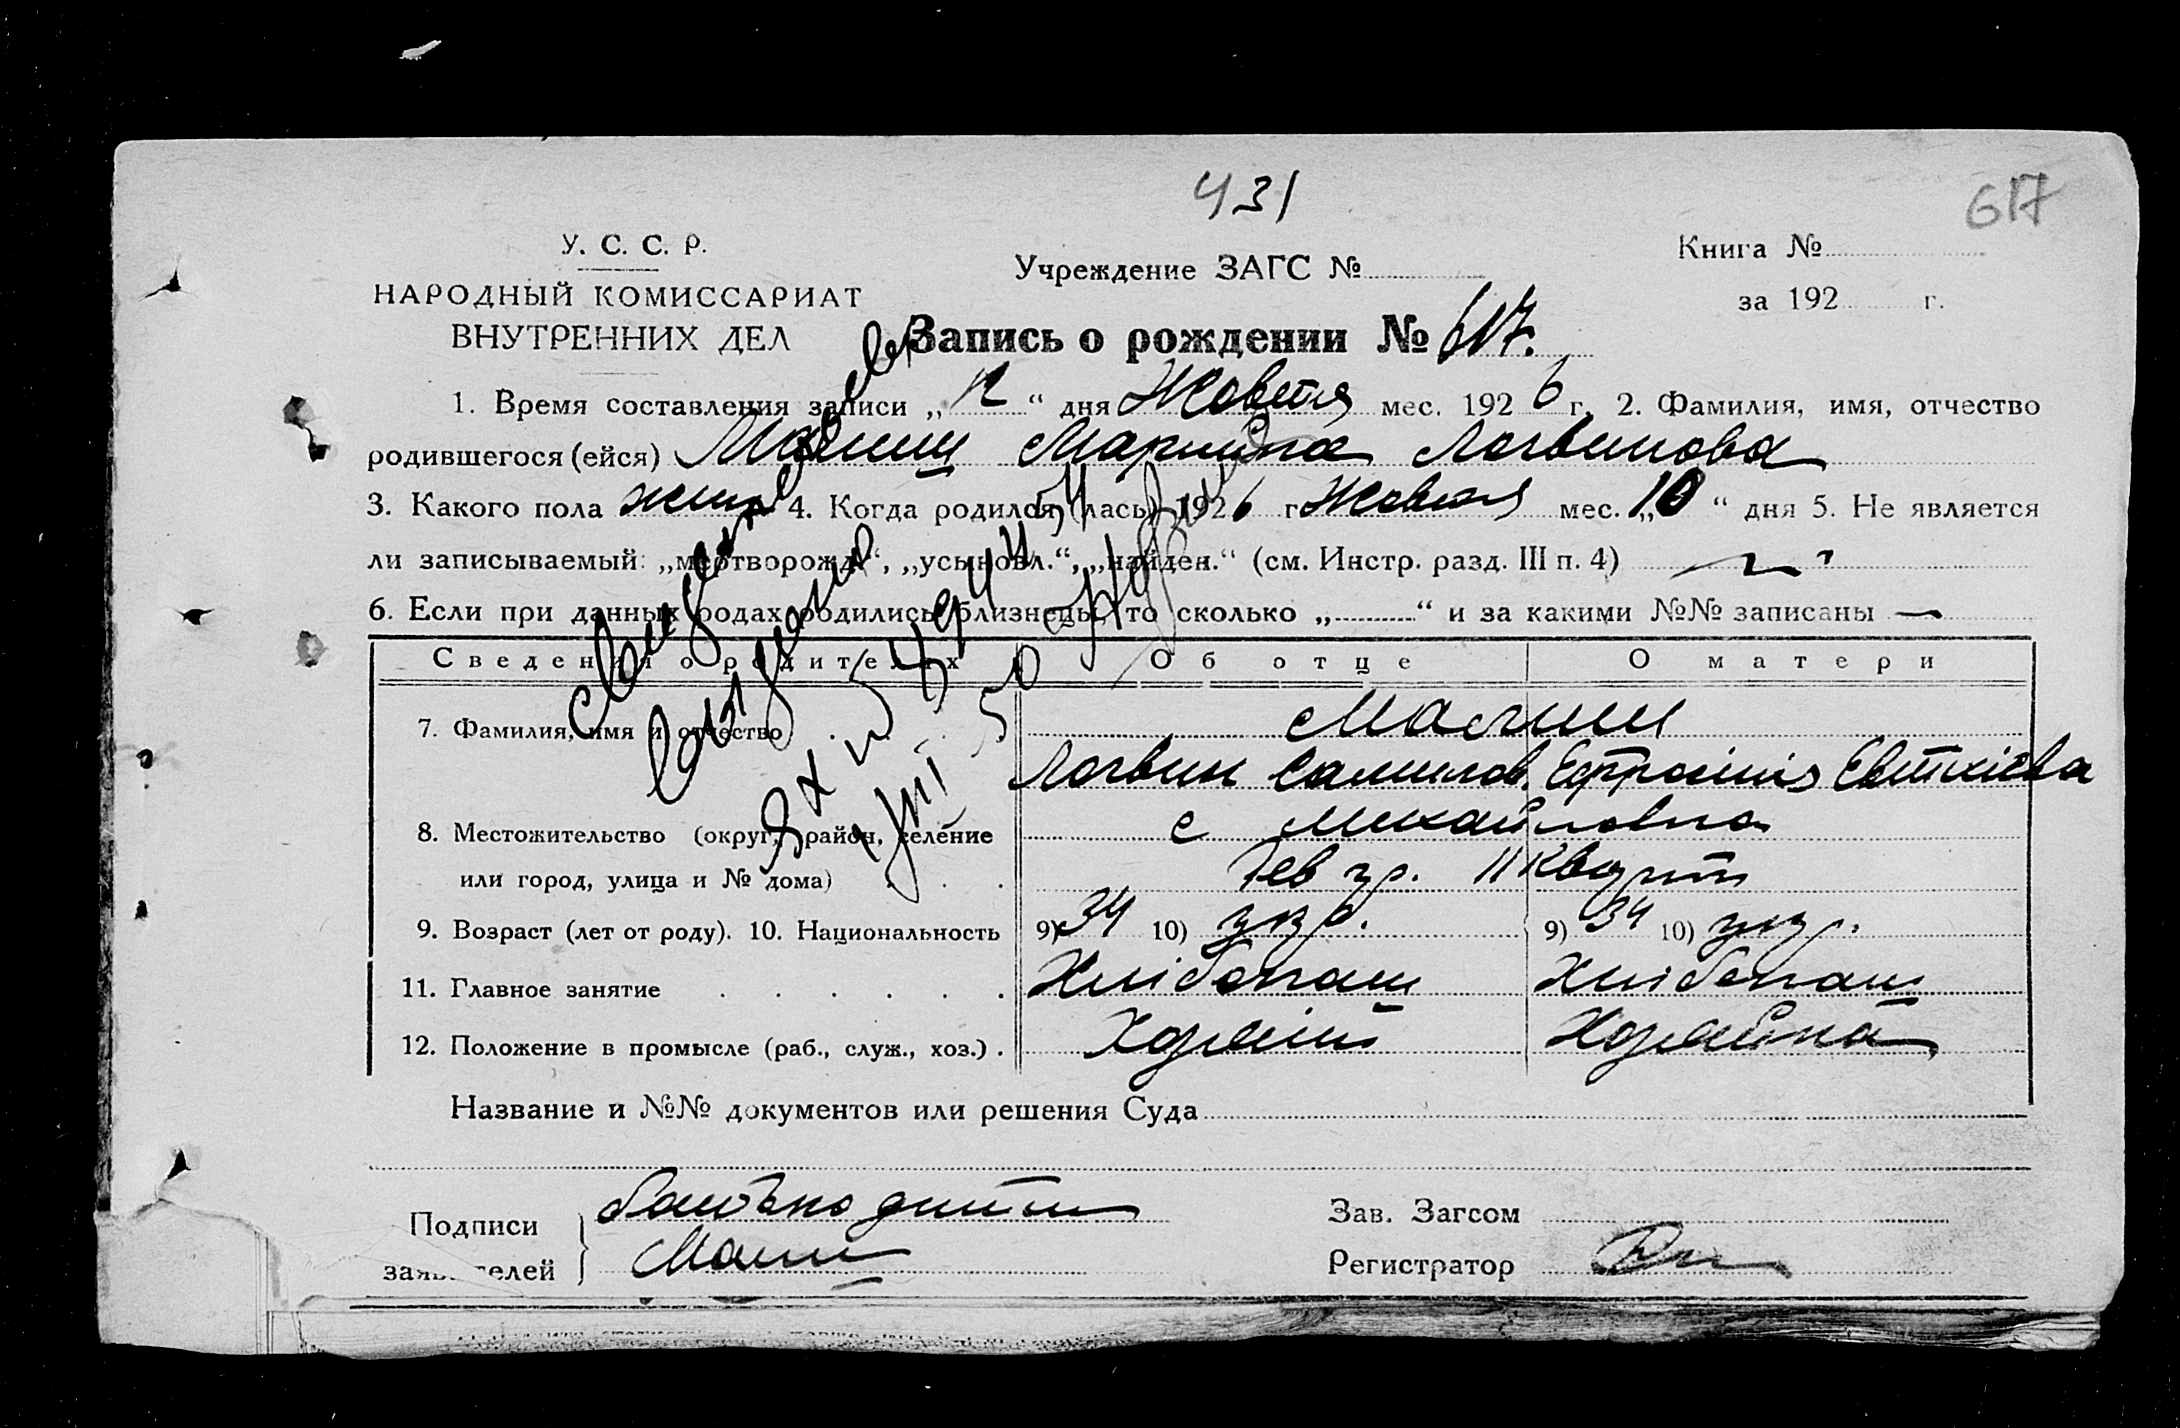 431
617
У. С. С. Р.
НАРОДНЫЙ КОМИССАРИАТ
ВНУТРЕННИХ ДЕЛ
Учреждение ЗАГС №
Книга №
за 192 г.
Запись о рождении № 617.
1. Время составления записи „12“ дня Жовтня мес. 1926 г. 2. Фамилия, имя, отчество
родившегося (ейся) Малиш Марина Логвинова
3. Какого пола жин 4. Когда родился (лась) 1926 г Жовтня мес. „10“ дня 5. Не является
ли записываемый: „мертворожд“, „усыновл.“, „найден.“ (см. Инстр. разд. III п. 4)
6. Если при данных родах родились близнецы, то сколько „ “ и за какими №№ записаны —
Сведения о родителях Об отце О матери
7. Фамилия, имя и отчество Малиш
Логвин Самилов.
8. Местожительство (округ, район, селение с Михайловка
или город, улица и № дома)
9. Возраст (лет от роду). 10. Национальность 9) 34 10) укр. 9) 34 10) укр.
11. Главное занятие Хлібопаш Хлібопаш
12. Положение в промысле (раб., служ., хоз.)
Название и №№ документов или решения Суда
Подписи батько дитини
заявителей Малиш
Зав. Загсом
Регистратор
Свидетельство
выдано